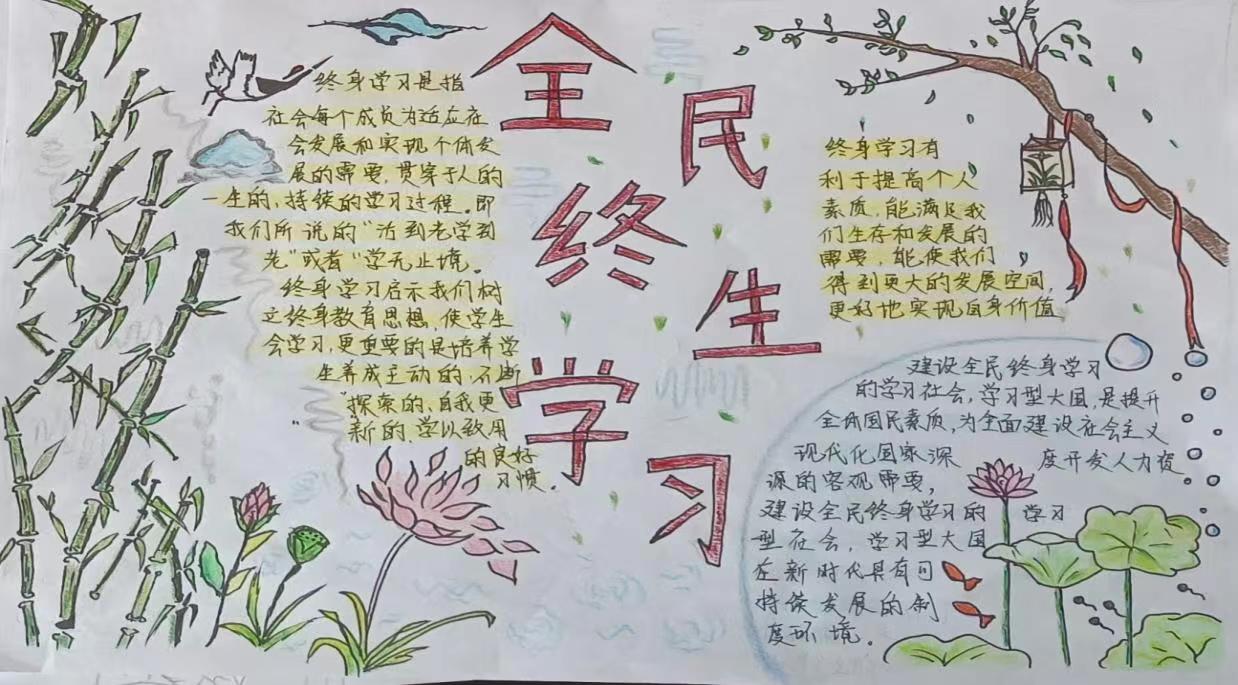 全民终生学习
终身学习是指
社会每个成员为适应在
会发展和实现个体发
展的需要,贯穿于人的
一生的,持续的学习过程。即
我们所说的“活到老学到
老”或者“学无止境。
终身学习启示我们树
立终身教育思想,使学生
会学习,更重要的是培养学
生养成主动的、不断
探索的、自我更
新的、学以致用
的良好
习惯。
终身学习有
利于提高个人
素质,能满足我
们生存和发展的
需要,能使我们
得到更大的发展空间,
更好地实现自身价值
建设全民终身学习
的学习社会,学习型大国,是提升
全体国民素质,为全面建设社会主义
现代化国家深 度开发人力资
源的客观需要,
建设全民终身学习的 学习
型社会,学习型大国
在新时代具有可
持续发展的制
度环境。